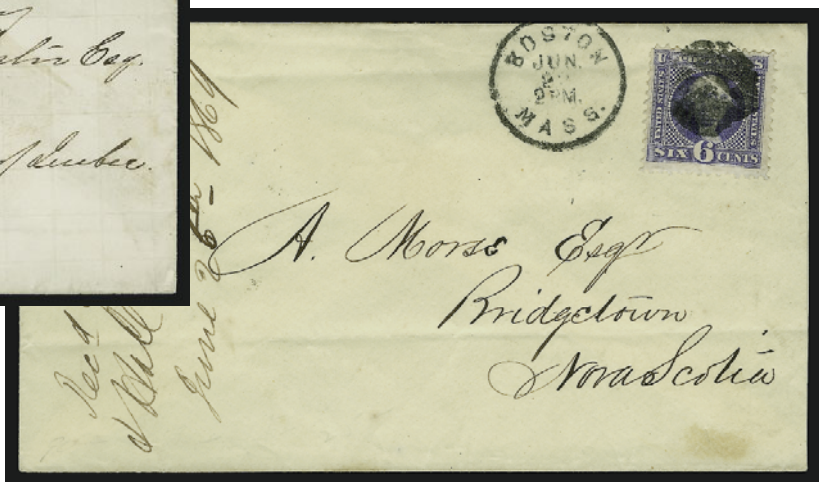 Esq.
Quebec.
BOSTON
JUN.
2 PM.
MASS.
U S
UNITED STATES
SIX 6 CENTS
A. Morse Esqr
Bridgetown
Nova Scotia
Recd
June 26th 1869